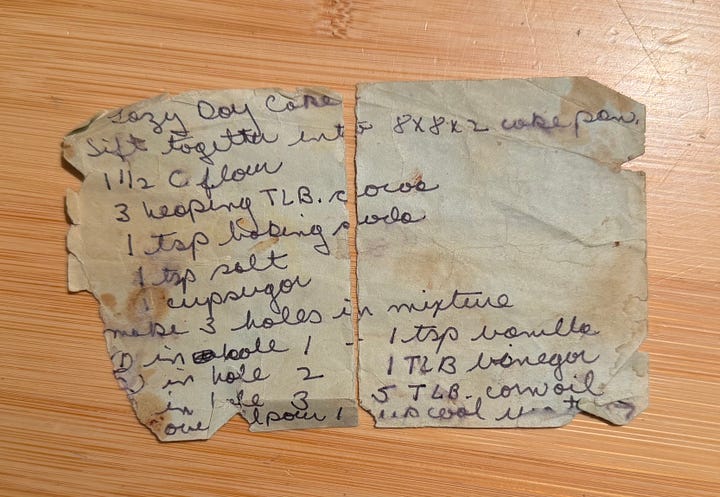 Lazy Day Cake
Sift together into 8x8x2 cake pan.
1 1/2 C flour
3 heaping TLB. cocoa
1 tsp baking soda
1 tsp salt
1 cup sugar
make 3 holes in mixture
1) in hole 1 - 1 tsp vanilla
2) in hole 2 1 TLB vinegar
in hole 3 5 TLB. corn oil
over all pour 1 cup cool water